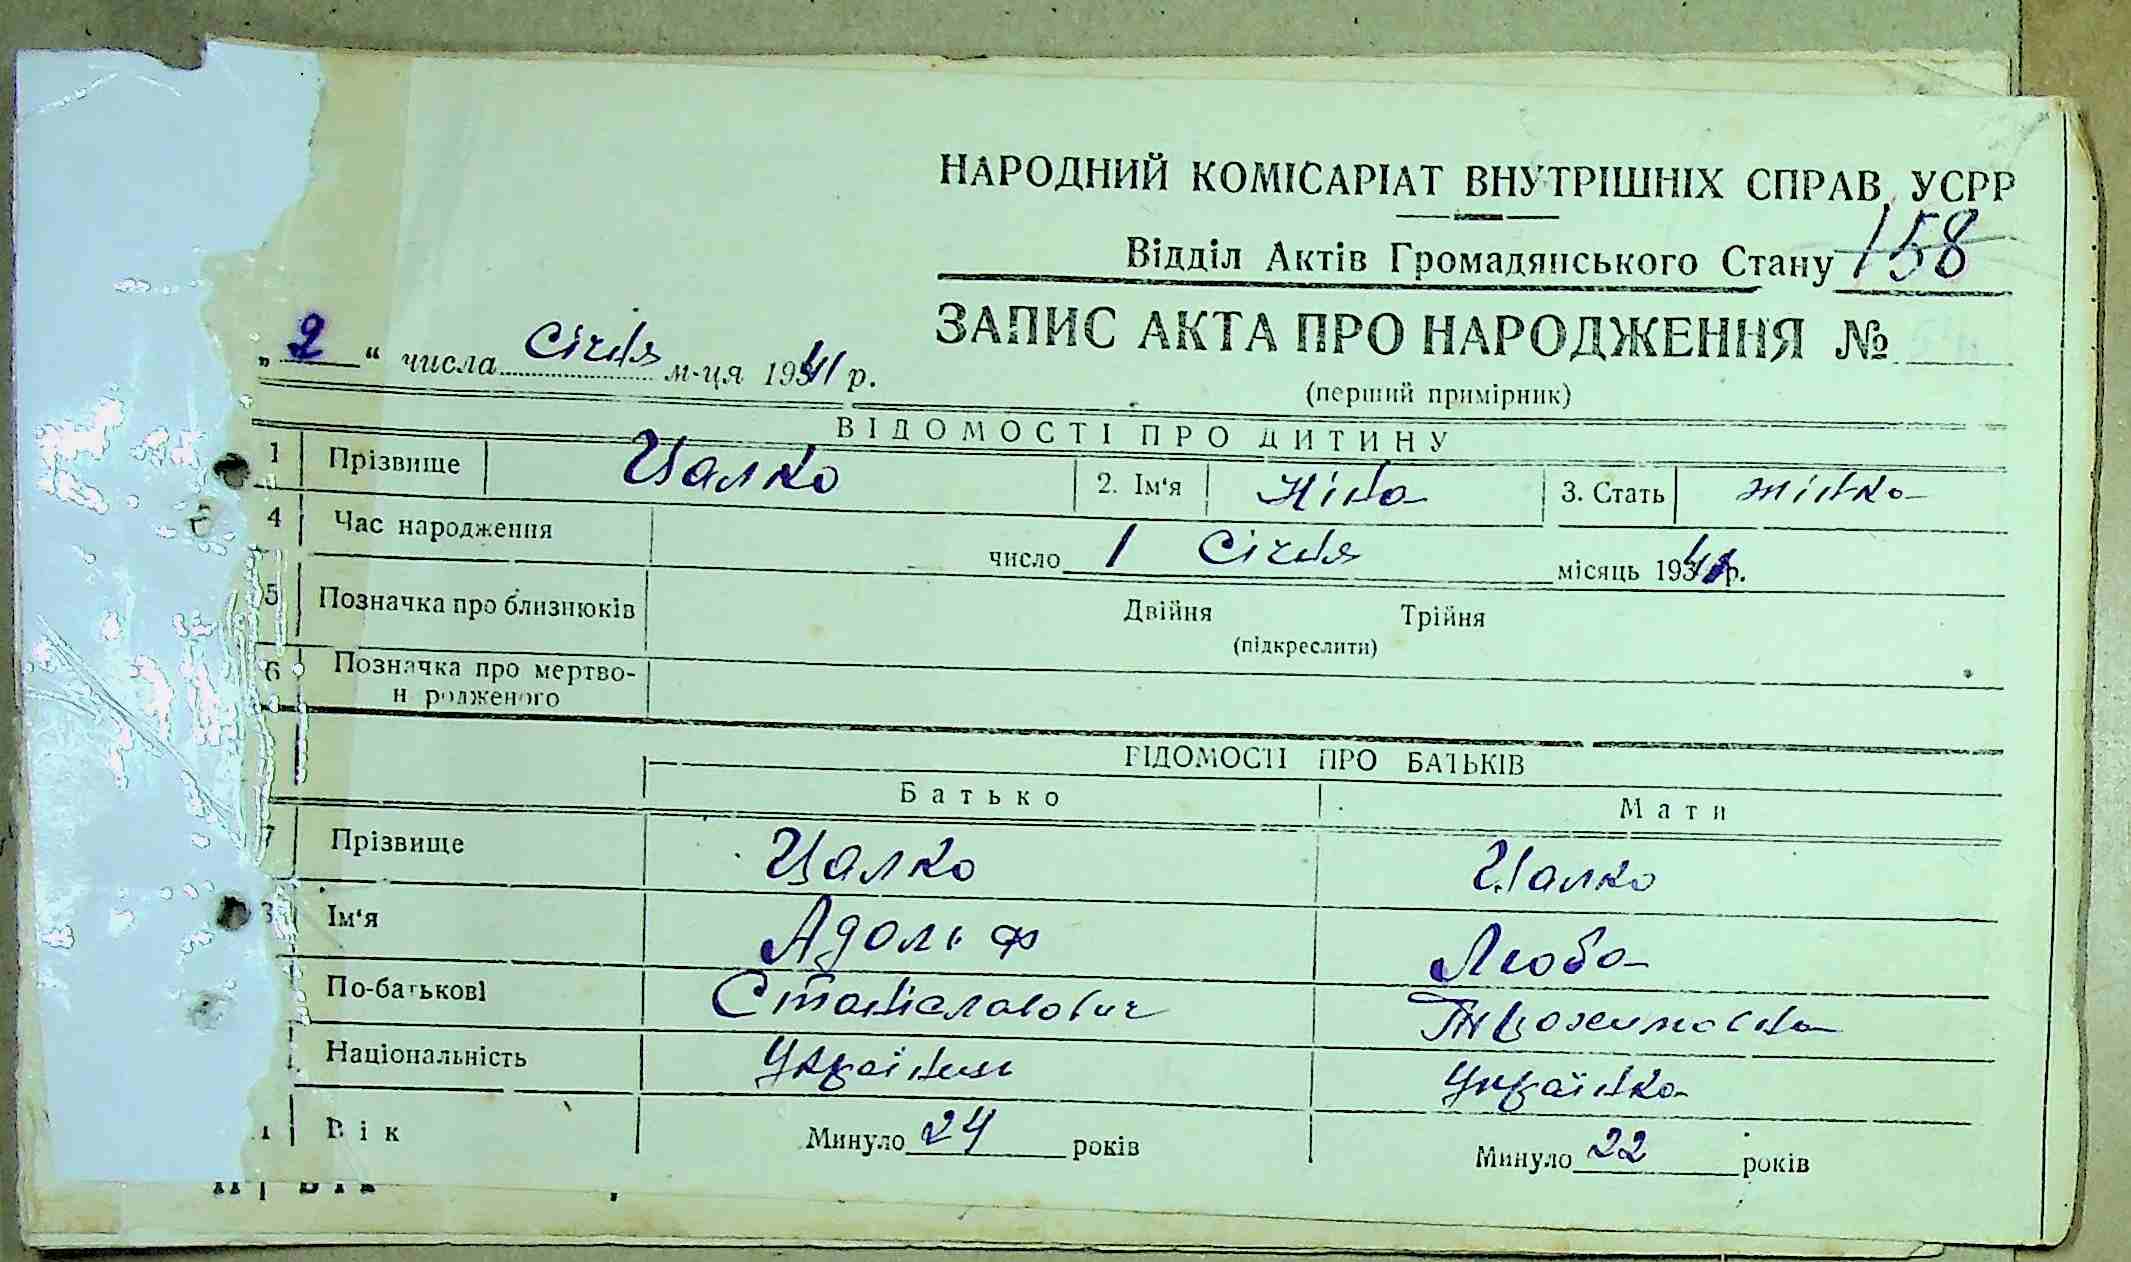 НАРОДНИЙ КОМІСАРІАТ ВНУТРІШНІХ СПРАВ УСРР
Відділ Актів Громадянського Стану 158
ЗАПИС АКТА ПРО НАРОДЖЕННЯ №
„ 2 “ числа Січня м-ця 1941 р.
(перший примірник)
ВІДОМОСТІ ПРО ДИТИНУ
1 Прізвище Цалко 2. Ім‘я Ніна 3. Стать жінка
4 Час народження число 1 Січня місяць 1941 р.
5 Позначка про близнюків Двійня Трійня
(підкреслити)
6 Позначка про мертво-
н родженого
ВІДОМОСТІ ПРО БАТЬКІВ
Батько Мати
7 Прізвище Цалко Цалко
8 Ім‘я Адольф Люба
По-батькові Станіславович
Національність Українець Українка
Вік Минуло 24 років Минуло 22 років
11 Вік